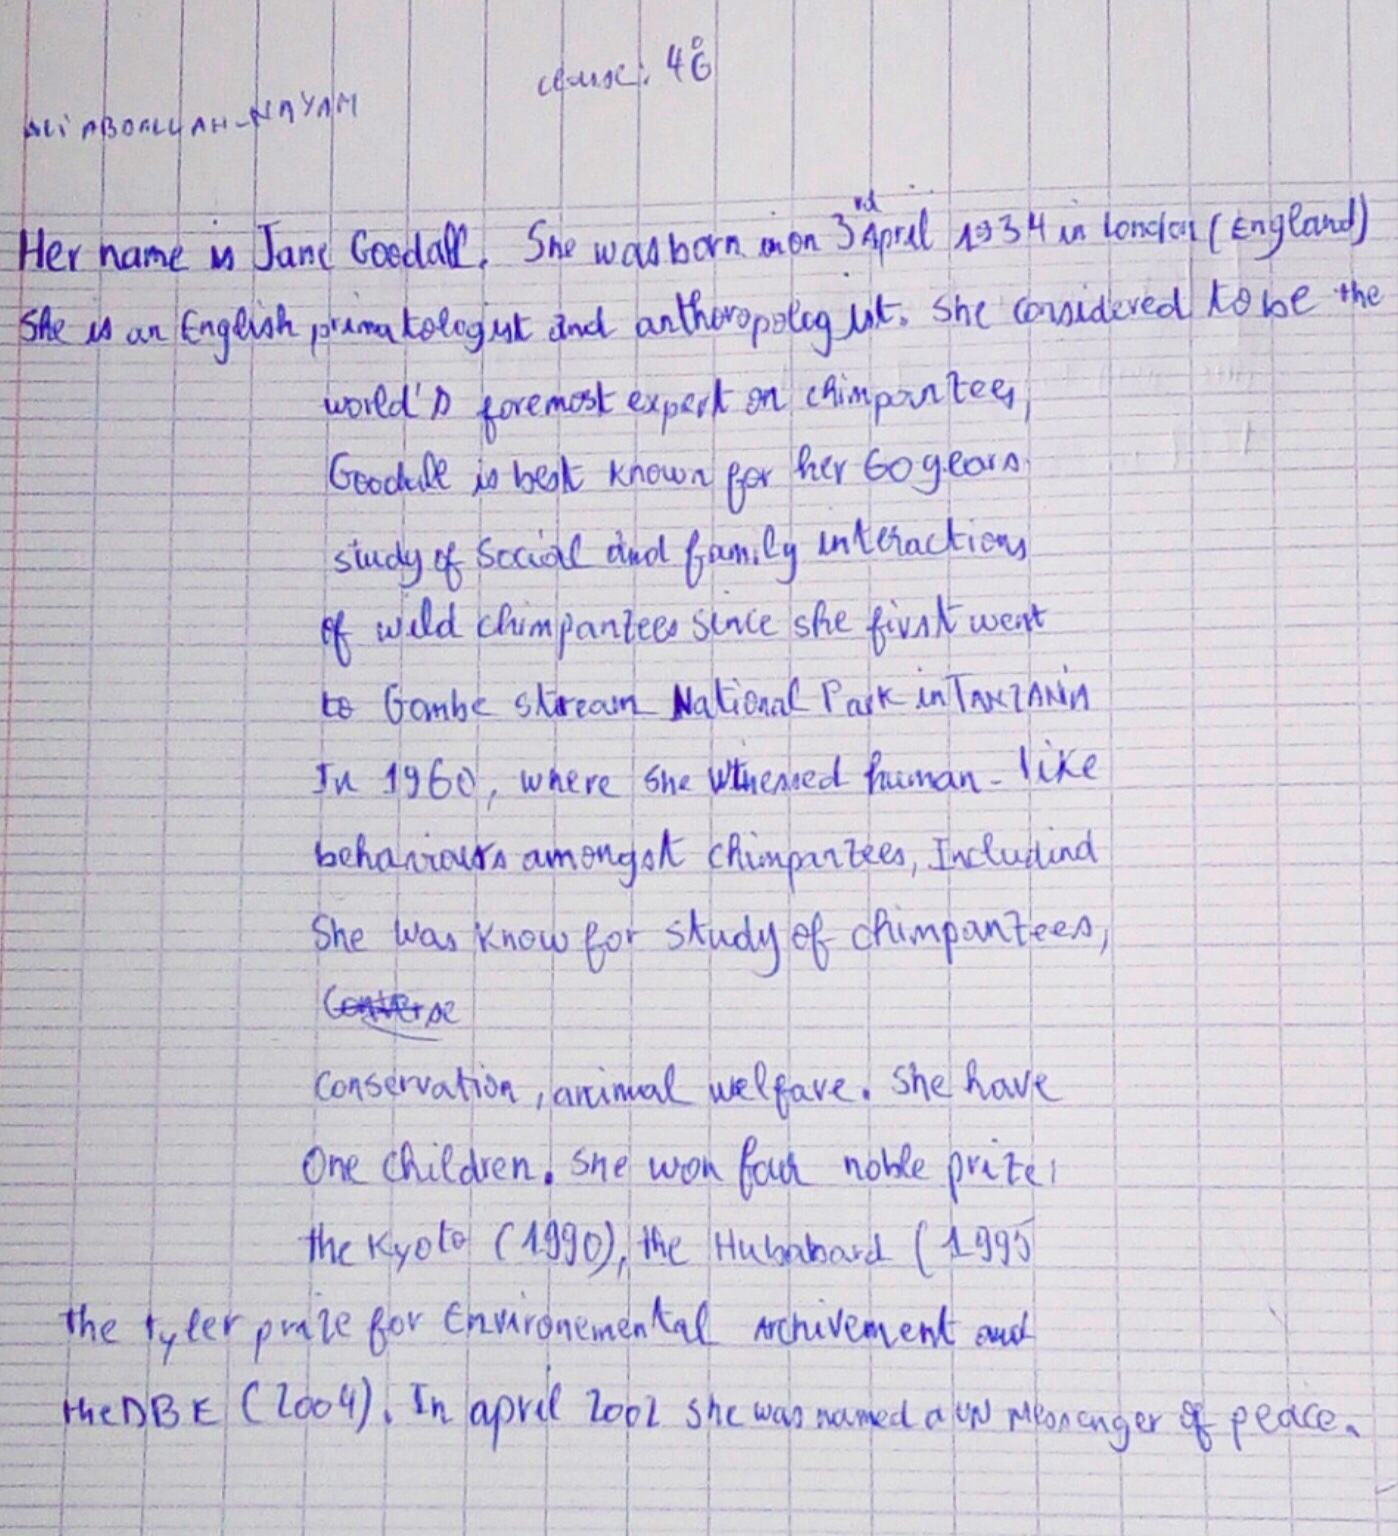 classe: 4°G
ALI ABDALLAH-NAYAM
Her name is Jane Goodall. She was born in on 3rd April 1934 in London (England)
She is an English primatologist and anthoropologist. She considered to be the
world's foremost expert on chimpantees,
Goodall is best known for her 60 years
study of Social and family interactions
of wild chimpanzees since she first went
to Gombe stream National Park in TANZANIA
In 1960, where she witnessed human-like
behaviours amongst chimpanzees, Includind
She was know for study of chimpantees,
Converse
conservation, animal welfare. She have
One children. She won four noble prize,
the Kyoto (1990), the Hubabard (1995
the tyler prize for Environemental Archivement and
the DBE (2004). In april 2002 she was named a UN Messenger of peace.